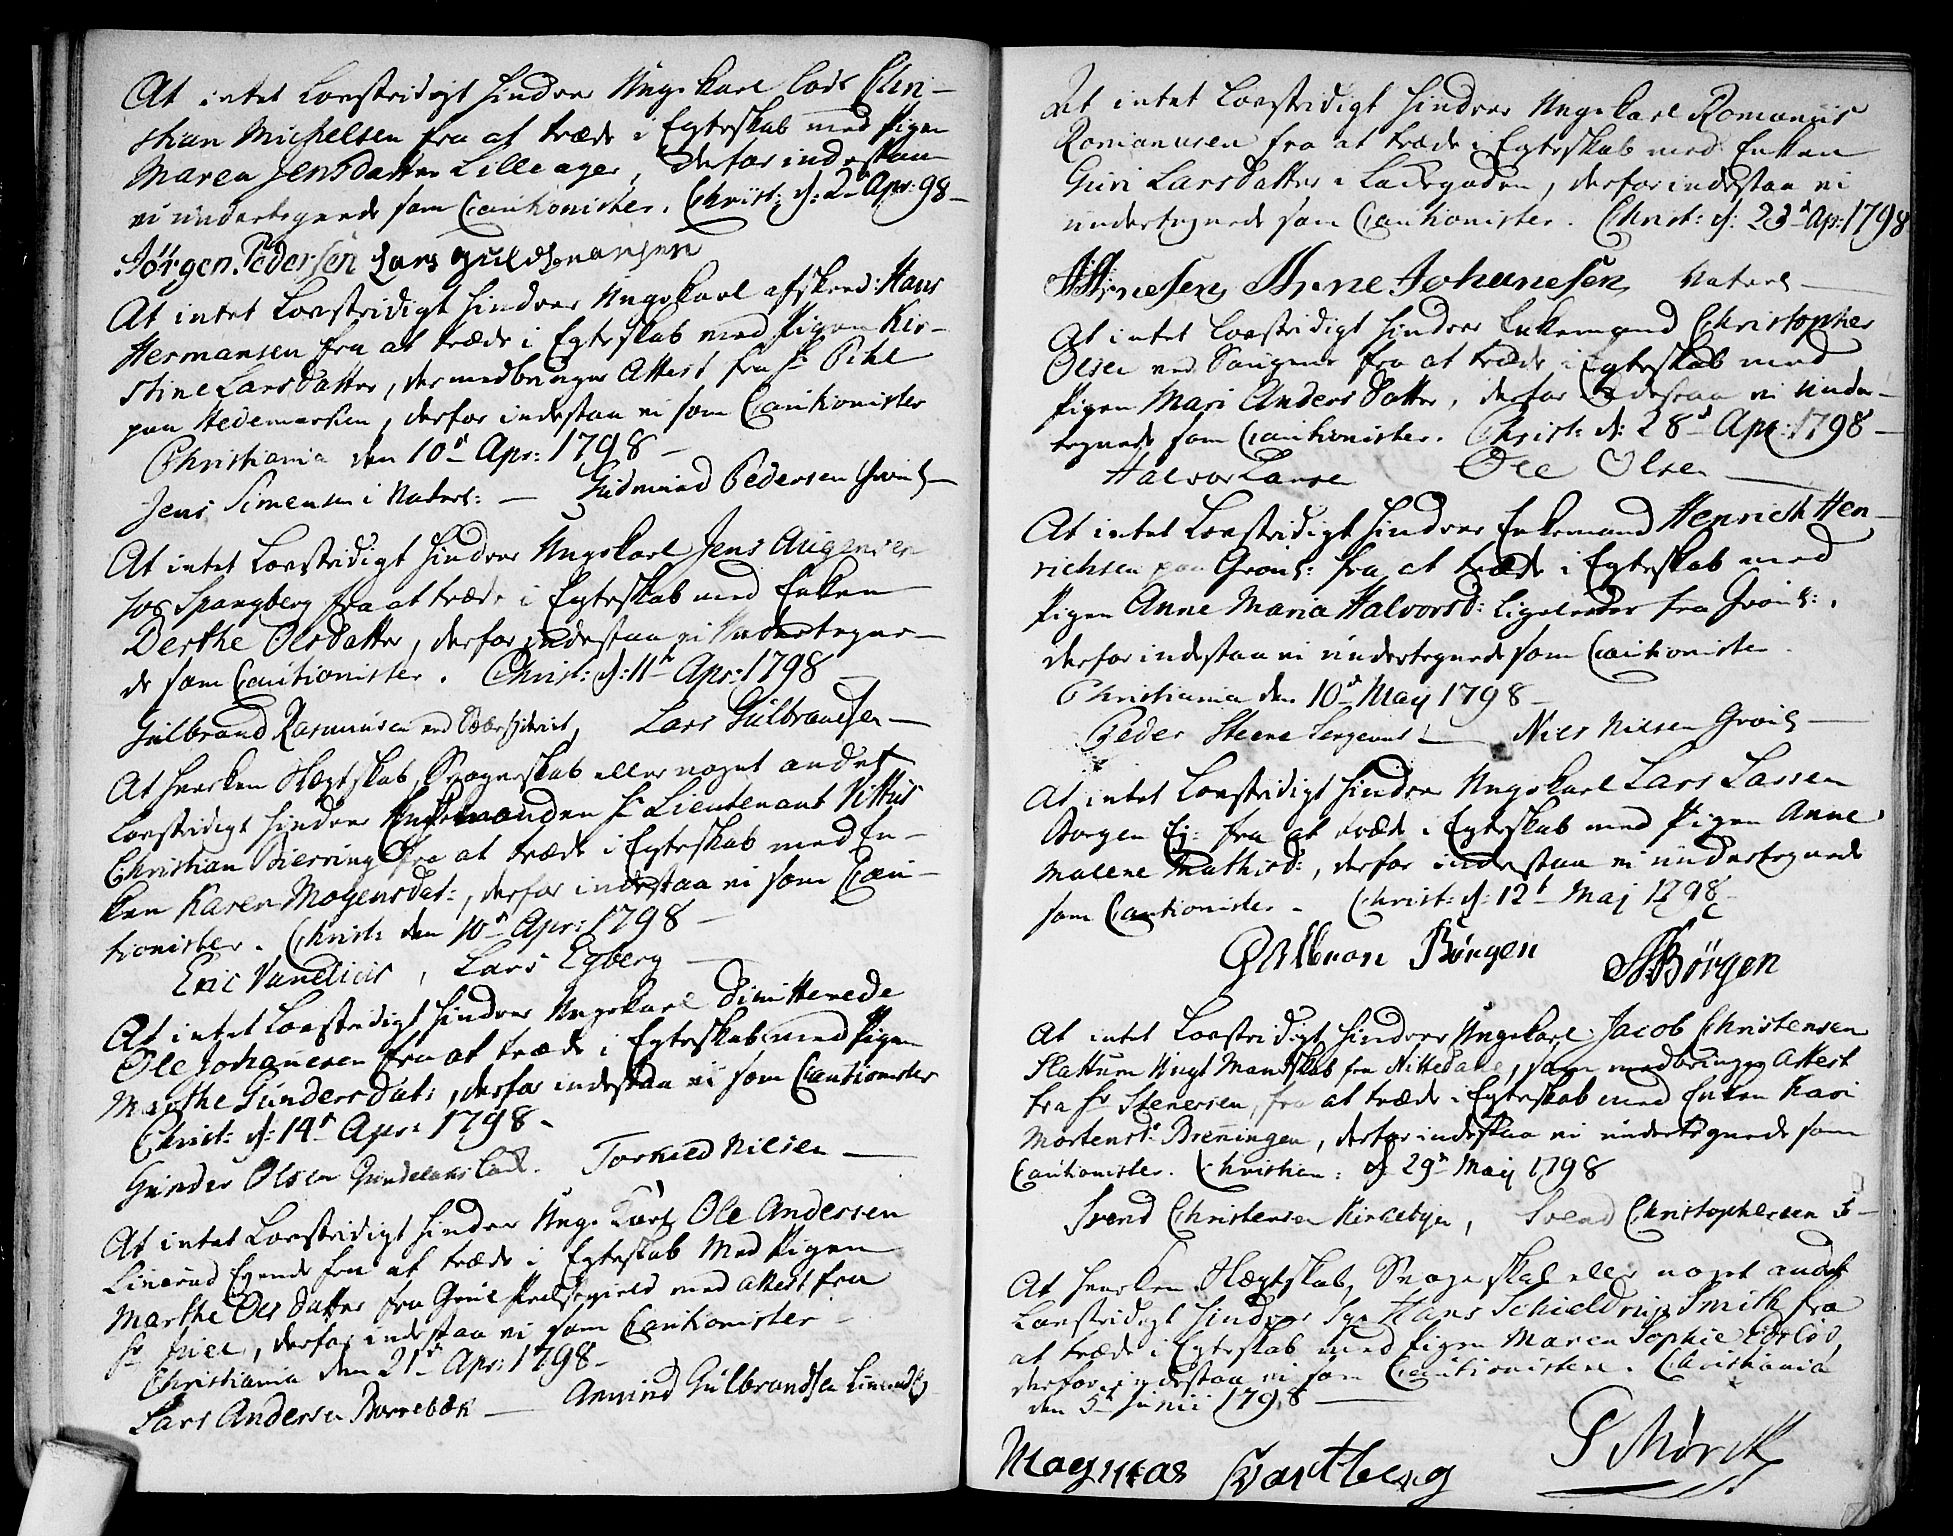 At intet Lovstridigt hindrer Ungekarl Chri-
stian Michelsen fra at træde i Egteskab med Pigen
Maren Jensdatter Lilleager, derfor indestaae
vi undertegnede som Cautionister. Christ: d: 2 Apr: 98-
Jørgen Pedersen Lars
At intet Lovstridigt hindrer Ungekarl afskeed: Hans
Hermansen fra at træde i Egteskab med Pigen Kir-
stine Larsdatter, der medbringer Attest fra Hr Pihl
paa Hedemarken, derfor indestaa vi som Cautionister
Christiania den 10d Apr: 1798 -
Jens Simensen i Waterl: - Gudmund Pedersen Grønl -
At intet Lovstridigt hindrer Ungekarl Jens Augensen
hos Spangberg fra at træde i Egteskab med Enken
Berthe Olsdatter, derfor indestaa vi Undertegne-
de som Cautionister. Christ: d: 11t Apr: 1798 -
Gulbrand Rasmussen ved Lars Gulbransen -
At hverken Slægtskab, Svogerskab eller noget andet
Lovstridigt hindrer Enkemanden Hr Lieutenant Vittus
Christian Bierring fra at træde i Egteskab med En-
ken Karen Mogensdat:, derfor indestaa vi som Cau-
tionister. Christ: den 10d Apr: 1798 -
Eric Vandelius, Lars Egberg -
At intet Lovstridigt hindrer Ungekarl Dimitterede
Ole Johanesen fra at træde i Egteskab med Pigen
Marthe Gundersdat:, derfor indestaa vi som Cautionister
Christ: d: 14d Apr: 1798 -
Gunder Olsen Torkild Nielsen -
At intet Lovstridigt hindrer Unge Karl Ole Andersen
Linerud fra at træde i Egteskab Med Pigen
Marthe Olsdatter fra Præstegield med attest fra
Hr, derfor indestaa vi som Cautionister
Christiania den 21d Apr: 1798 -
Lars Andersen Borrebæk - Amund Gulbrandsen
At intet Lovstridigt hindrer Ungekarl Romanus
Romanusen fra at træde i Egteskab med Enken
Guri Larsdatter i Ladegaden, derfor indestaa vi
undertegnede som Cautionister. Christ: d: 23d Ap: 1798
Arnesen Arne Johanesen Waterl -
At intet Lovstridigt hindrer Enkemand Christopher
Olsen ved Saugene fra at træde i Egteskab med
Pigen Mari Andersdatter, derfor indestaa vi Under-
tegnede som Cautionister. Christ: d: 28d Apr: 1798 -
Halvor Larsen Ole Olsen -
At intet Lovstridigt hindrer Enkemand Henrich Hen-
richsen paa Grønl: fra at træde i Egteskab med
Pigen Anne Maria Halvorsd: ligeledes fra Grønl:,
derfor indestaa vi undertegnede som Cautionister.
Christiania den 10d May 1798 -
Peder Steene Sergeant - Niels Nilsen Grønl -
At intet Lovstridigt hindrer Ungekarl Lars Larsen
Borgen Ej: fra at træde i Egteskab med Pigen Anne
Malene Mathisd:, derfor indestaa vi undertegnede
som Cautionister - Christ: d: 12t Maj 1798
Børgen Børgen
At intet Lovstridigt hindrer Ungekarl Jacob Christensen
Slattum Ungt Mandskab fra Nittedalle, som medbringer Attest
fra Hr Stenersen, fra at træde i Egteskab med Enken Kari
Mortensd: Breningen, derfor indestaa vi undertegnede som
Cautionister. Christian: d 29d Maij 1798
Svend Christensen Kirkebyen, Svend Christophersen
At hverken Slægtskab, Svogerskab eller noget andet
Lovstridigt hindrer Hans Schieldrup Smith fra
at træde i Egteskab med Pigen Maren Sophie,
derfor indestaa vi som Cautionister. Christiania
den 5t Junii 1798 -
Magnus P Mørck